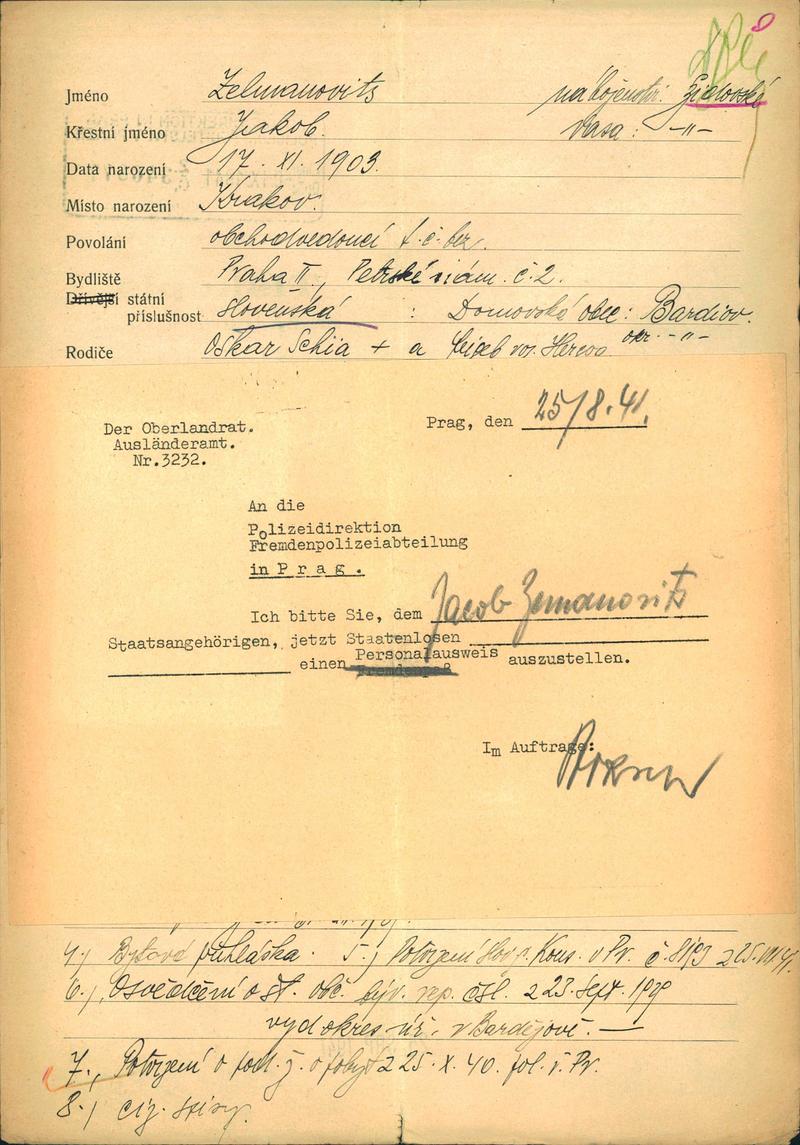 Jméno Zelmanovits náboženství: židovské
Křestní jméno Jakob. rasa: -"-
Data narození 17. XI. 1903.
Místo narození Krakov.
Povolání obchodvedoucí t.č. bez.
Bydliště Praha II, Petrské nám. č. 2.
Dřívější státní
příslušnost slovenská : Domovská obec: Bardiov.
okr. -"-
Rodiče Oskar Schia + a
Prag, den 25/8.41.
Der Oberlandrat.
Ausländeramt.
Nr.3232.
An die
Polizeidirektion
Fremdenpolizeiabteilung
in Prag.
Ich bitte Sie, dem Jacob Zemanovits
Staatsangehörigen, jetzt Staatenlosen
einen Personalausweis auszustellen.
Fremdenpaß
Im Auftrage:
4.) Bytová přihláška. 5.) Potvrzení slov. Kons. v Pr.
6.) Osvědčení o st. obč. býv. rep. čsl. z 23. sept. 1929
vyd okres. úř. v Bardějově. —
7., Potvrzení o z 25. X. 40. pol. ř. Pr.
8.) ciz. spisy.